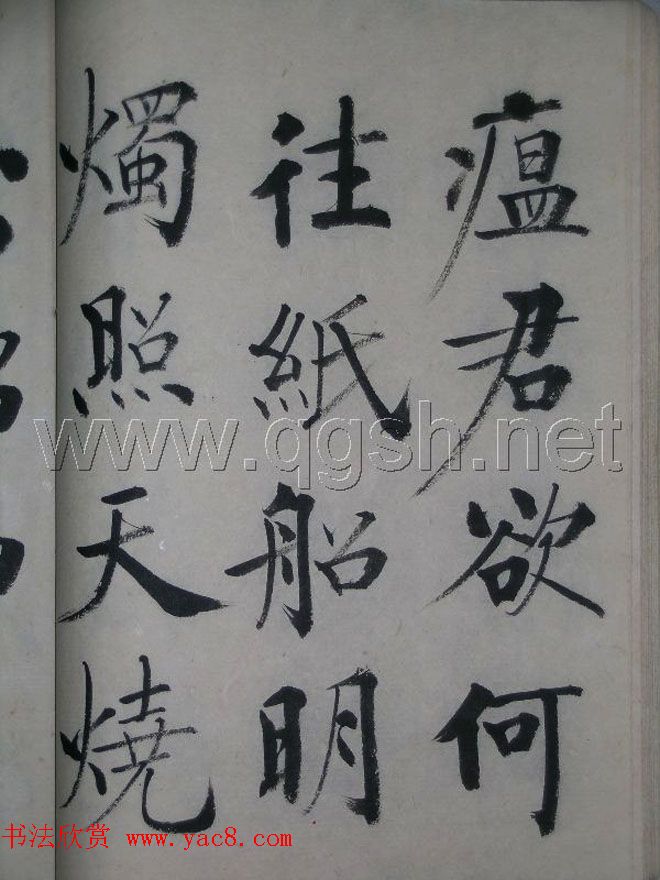 瘟君欲何
往紙船明
燭照天燒
www.qgsh.net
书法欣赏 www.yac8.com